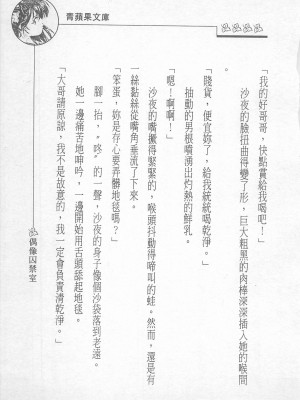 青蘋果文庫
「我的好哥哥，快點賞給我喝吧！」
沙夜的臉扭曲得變了形，巨大粗黑的肉棒深深插入她的喉間
。
「賤貨，便宜妳了，給我統統喝乾淨。」
抽動的男根噴湧出灼熱的鮮乳。
「嗯！啊啊！」
沙夜的嘴攏得緊緊的，喉頭抖動得像啼叫的蛙。然而，還是有
一絲黏絲從嘴角垂流了下來。
「笨蛋，妳是存心要弄髒地毯嗎？」
腳一抬，"咚"的一聲，沙夜的身子像個沙袋落到老遠。
她一邊痛苦地呻吟，一邊開始用舌頭舔起地毯。
「大哥請原諒，我不是故意的，我一定會負責清乾淨。」
偶像囚禁室